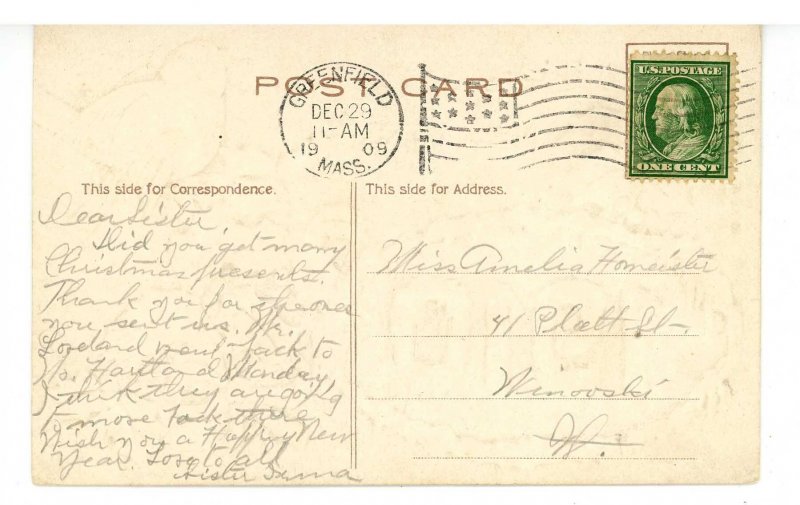 POST CARD
GREENFIELD
DEC 29
11-AM
1909
MASS.
U.S. POSTAGE
ONE CENT
This side for Correspondence.
This side for Address.
Dear Sister,
Did you get many
Christmas presents.
Thank you for the ones
you sent us. Mr.
Loveland went back to
So. Hartford Monday
I think they are going
to move back there
Wish you a Happy New
Year. Love to all
Sister
Miss Amelia Homeister
41 Platt St.
Winooski
Vt.